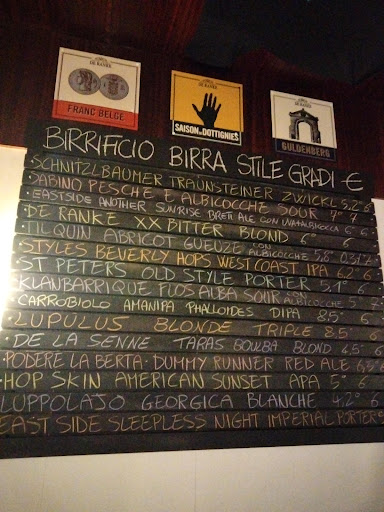 DE RANKE
FRANC BELGE
DE RANKE
SAISON de DOTTIGNIES
DE RANKE
GULDENBERG
BIRRIFICIO BIRRA STILE GRADI €
SCHNITZLBAUMER TRAUNSTEINER ZWICKL 5,2° 6
SABINO PESCHE E ALBICOCCHE SOUR 7° 7
EASTSIDE ANOTHER SUNRISE BRETT ALE CON UVA/ALBICOCCA 6° 6
DE RANKE XX BITTER BLOND 6° 6
TILQUIN ABRICOT GUEUZE CON ALBICOCCHE 5,8°
STYLES BEVERLY HOPS WEST COAST IPA 6,2° 6
ST PETERS OLD STYLE PORTER 5,1° 6
KLANBARRIQUE FLOS ALBA SOUR CON ALBICOCCHE 5° 7
CARROBIOLO AMANITA PHALLOIDES DIPA 8,5° 6
LUPULUS BLONDE TRIPLE 8,5° 6
· DE LA SENNE TARAS BOULBA BLOND 4,5° 6
· PODERE LA BERTA · DUMMY RUNNER RED ALE 6,5° 6
· HOP SKIN AMERICAN SUNSET APA 5° 6
LUPPOLAJO GEORGICA BLANCHE 4,2° 6
EAST SIDE SLEEPLESS NIGHT IMPERIAL PORTER